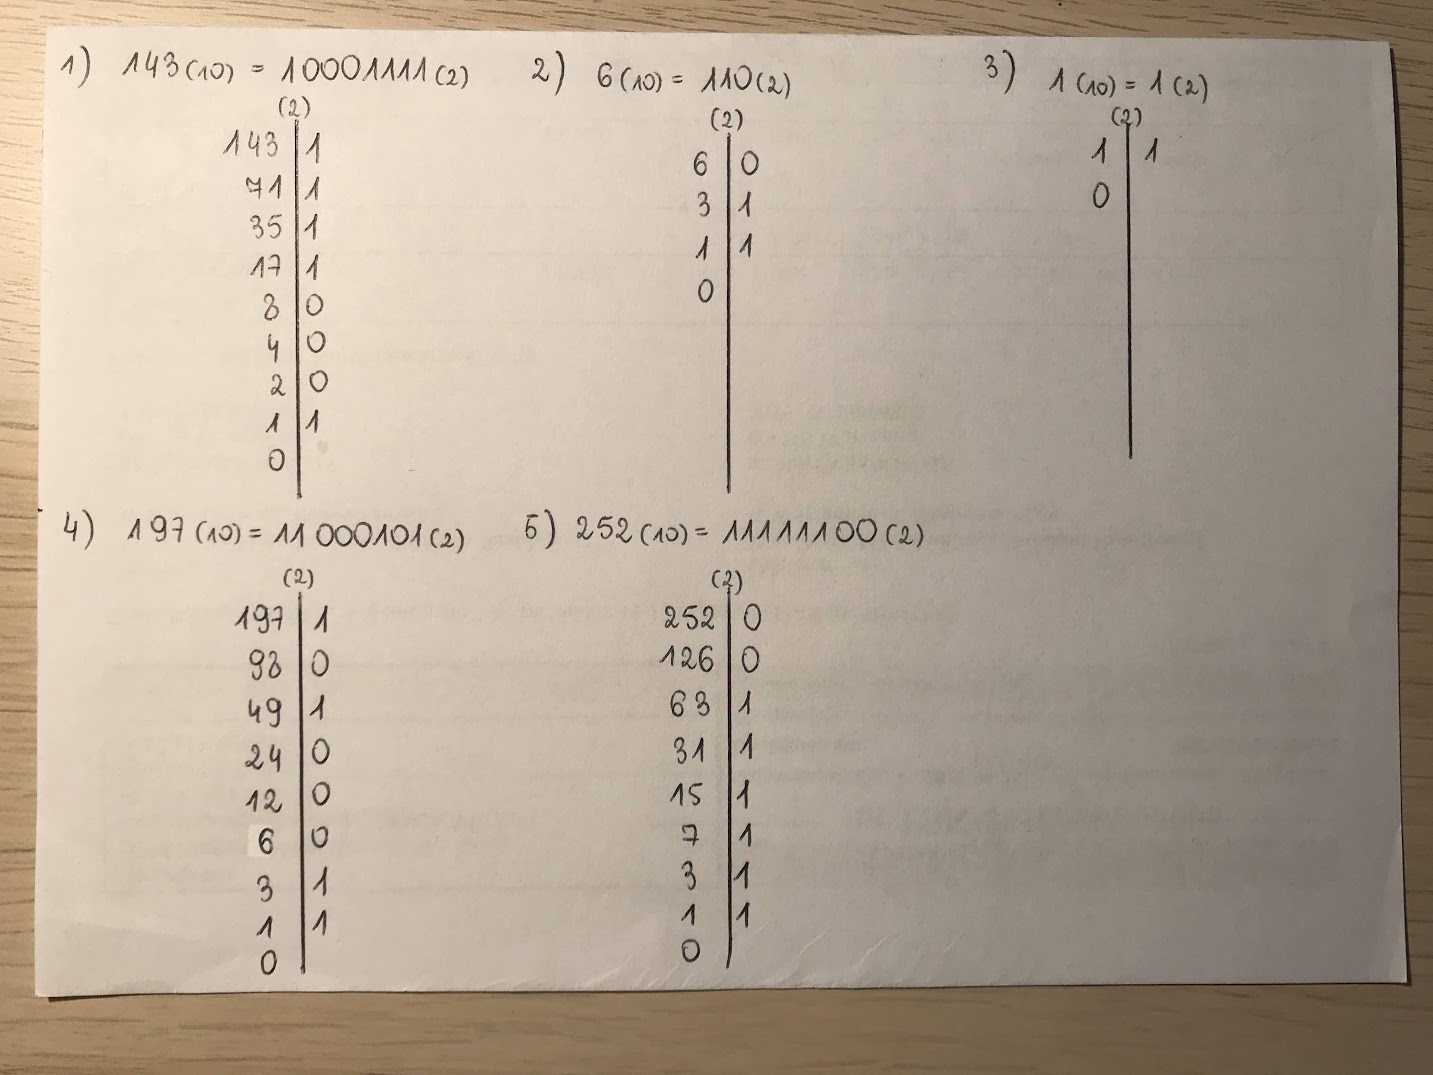 1) 143(10) = 10001111(2)
(2)
143 | 1
71 | 1
35 | 1
17 | 1
8 | 0
4 | 0
2 | 0
1 | 1
0 |
2) 6(10) = 110(2)
(2)
6 | 0
3 | 1
1 | 1
0 |
3) 1(10) = 1(2)
(2)
1 | 1
0 |
4) 197(10) = 11000101(2)
(2)
197 | 1
98 | 0
49 | 1
24 | 0
12 | 0
6 | 0
3 | 1
1 | 1
0 |
5) 252(10) = 11111100(2)
(2)
252 | 0
126 | 0
63 | 1
31 | 1
15 | 1
7 | 1
3 | 1
1 | 1
0 |